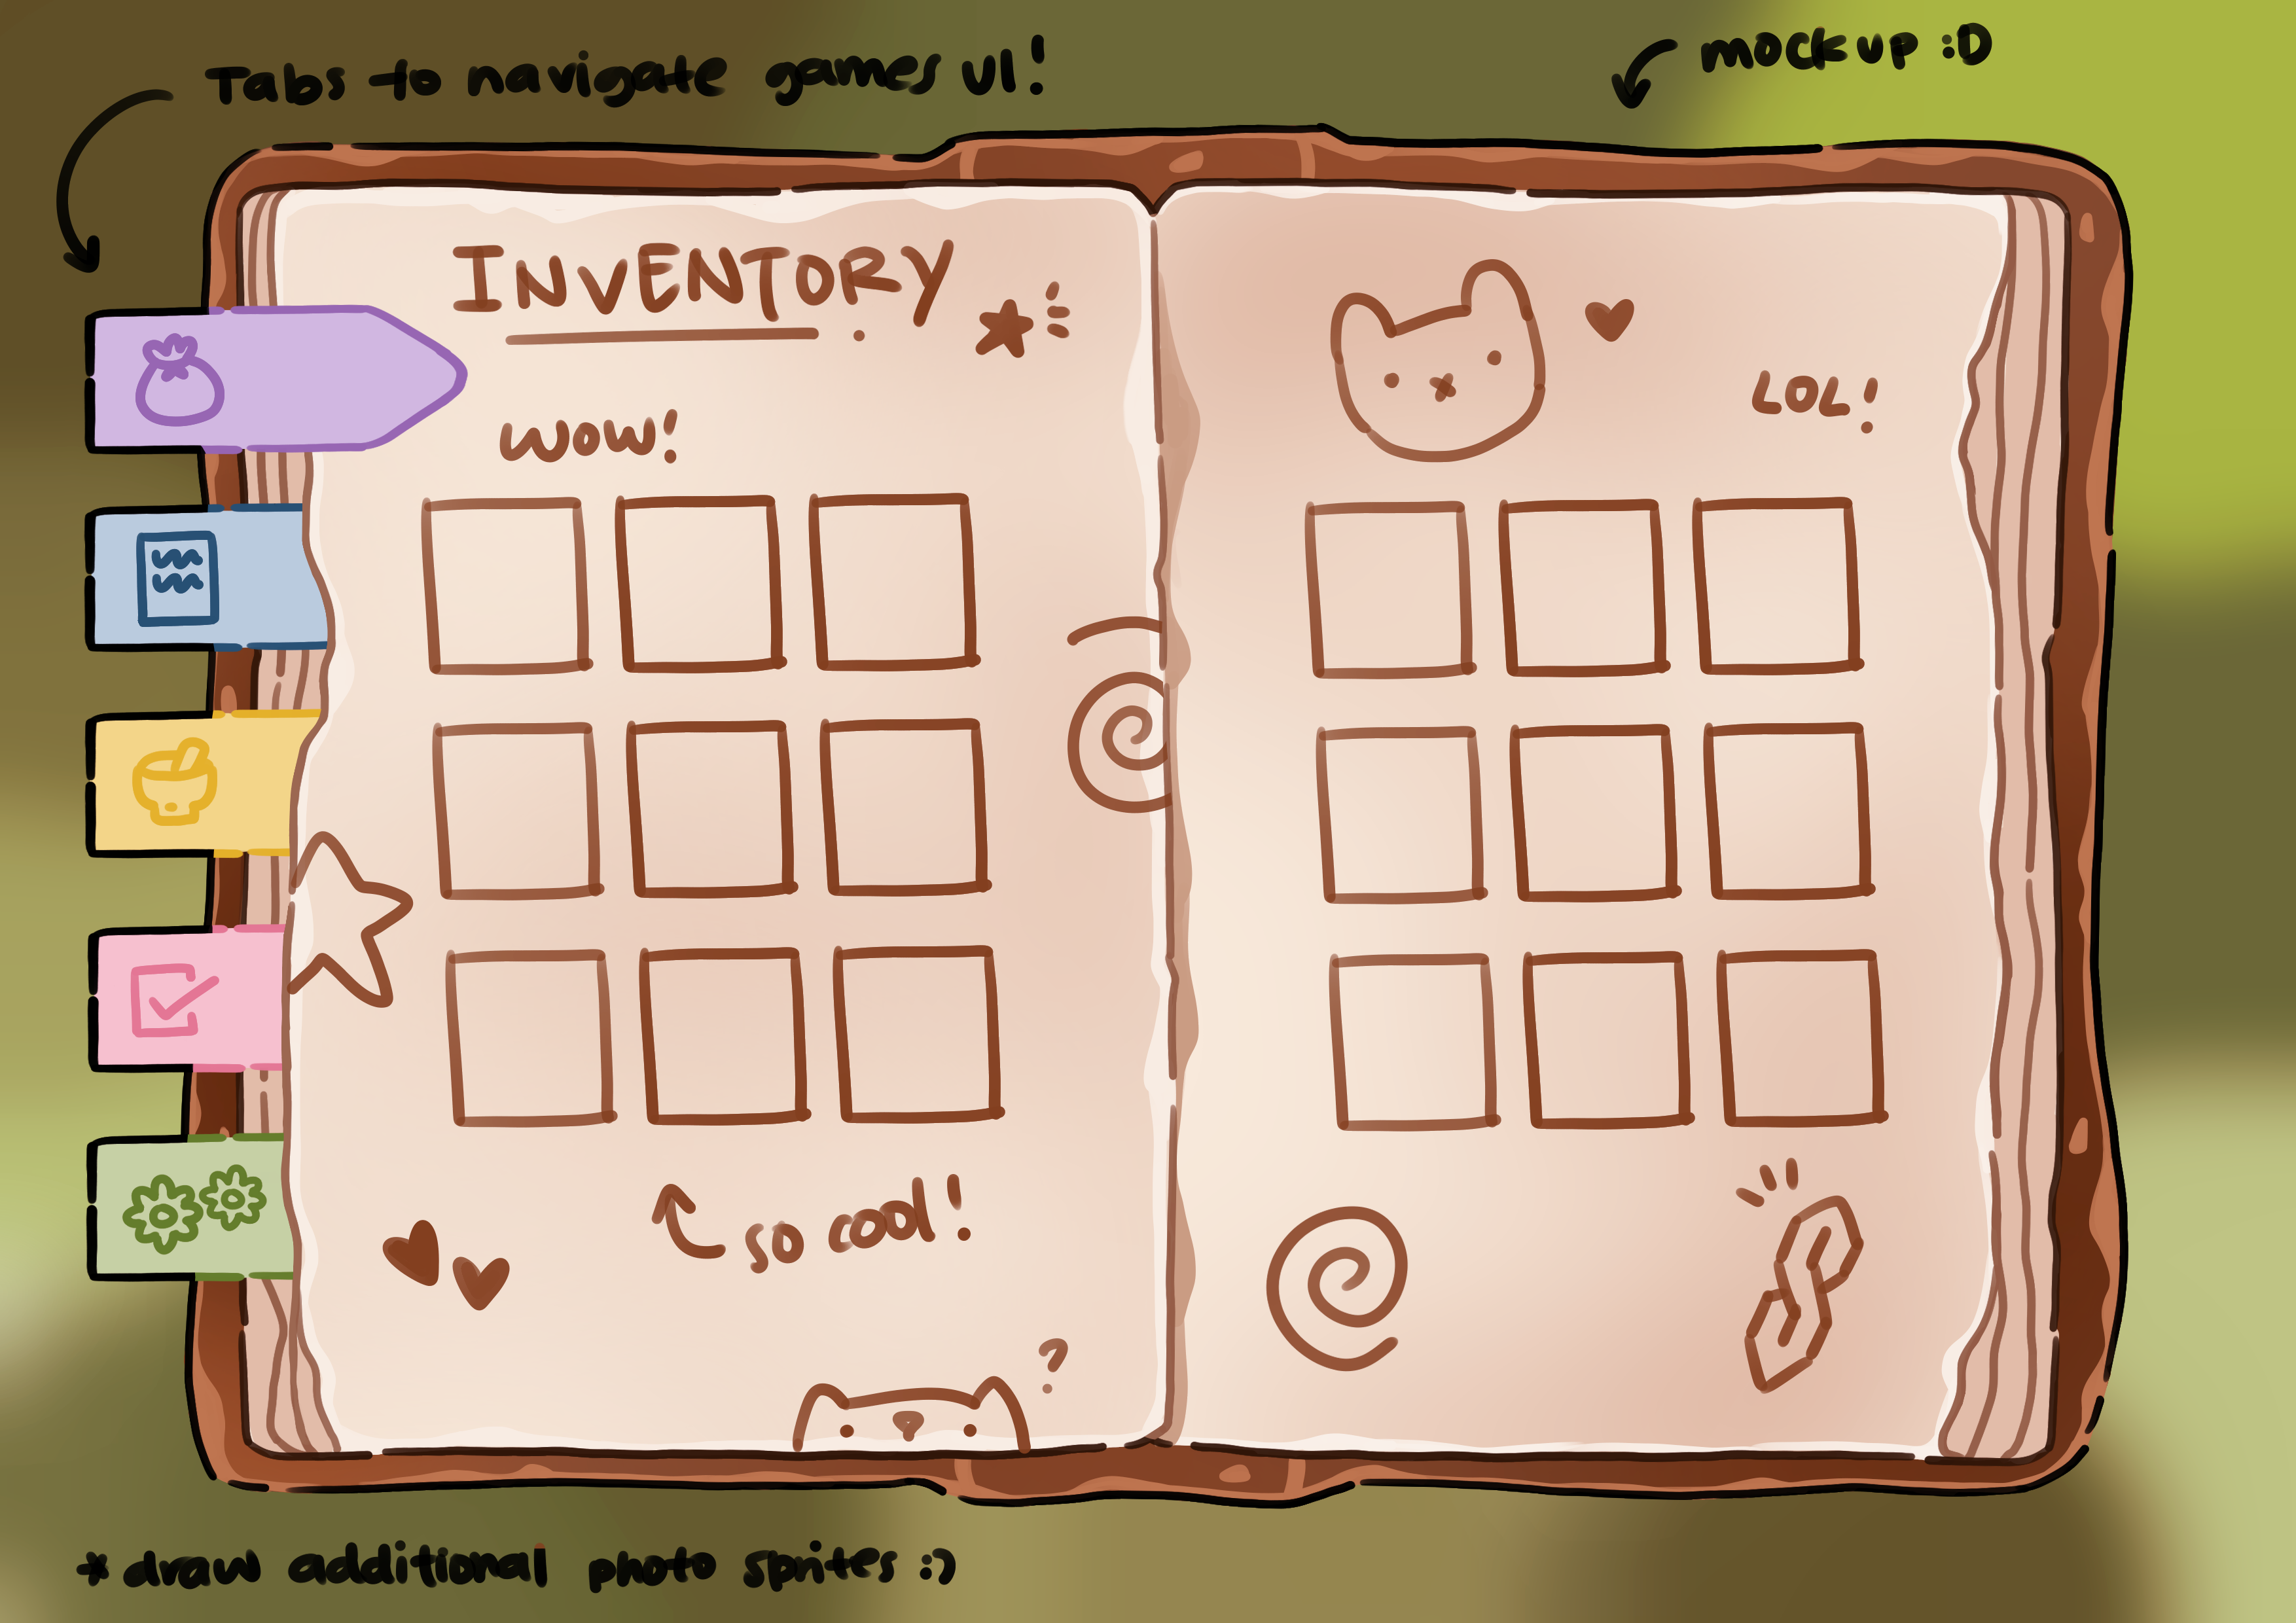 Tabs to navigate games UI!
mockup :D
INVENTORY
LOL!
WOW!
so cool!
?
* draw additional photo sprites :)